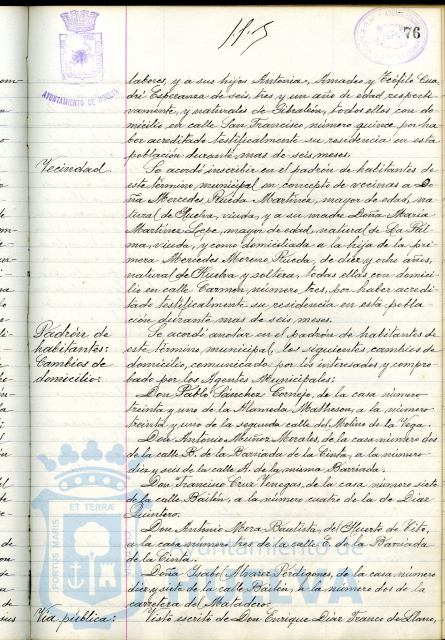 76
AYUNTAMIENTO DE HUELVA
labores, y a sus hijos Antonia, Amadeo y Teófilo Cua-
dri Esperanza de seis, tres y un año de edad respecti-
vamente, y naturales de Gibraleón, todos ellos con do-
micilio en calle San Francisco, número quince, por ha-
ber acreditado testificalmente su residencia en esta
población durante mas de seis meses.
Vecindad
Se acordó inscribir en el padrón de habitantes de
este término municipal en concepto de vecinas a Do-
ña Mercedes Rueda Martinez, mayor de edad, na-
tural de Huelva, viuda, y a su madre Doña Maria
Martinez Lepe, mayor de edad, natural de La Pal-
ma, viuda, y como domiciliada a la hija de la pri-
mera Mercedes Moreno Rueda, de diez y ocho años,
natural de Huelva y soltera, todas ellas con domici-
lio en calle Carmen número tres, por haber acredi-
tado testificalmente su residencia en esta pobla-
ción durante mas de seis meses.
Padrón de
habitantes:
Cambios de
domicilio:
Se acordó anotar en el padrón de habitantes de
este término municipal, los siguientes cambios de
domicilio, comunicado por los interesados y compro-
bado por los Agentes Municipales:
Don Pablo Sánchez Cornejo, de la casa número
treinta y uno de la Alameda Matheson, a la número
treinta y uno de la segunda calle del Molino de la Vega.
Don Antonio Muñoz Morales, de la casa número dos
de la calle B. de la Barriada de la Cinta, a la número
diez y seis de la calle A. de la misma Barriada.
Don Francisco Cruz Venegas, de la casa número siete
de la calle Bailén, a la número cuatro de la de Diaz
Quintero.
Don Antonio Mora Bautista, del Huerto de Vito,
a la casa número tres de la calle C. de la Barriada
de la Cinta.
Doña Isabel Alvarez Perdigones, de la casa número
diez y siete de la calle Bailén, a la número dos de la
carretera del Matadero.
Via pública:
Visto escrito de Don Enrique Diaz Franco de Llano,
PORTUS MARIS
ET TERRAE
Ayuntamiento de
HUELVA